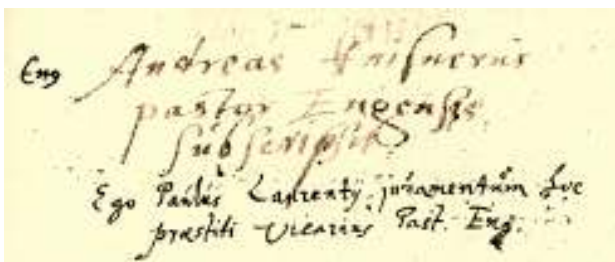 Eng Andreas Knisnerus
pastor Engensis
subscripsit
Ego Paulus Laurentij juramentum hoc
præstiti Vicarius Past. Eng.